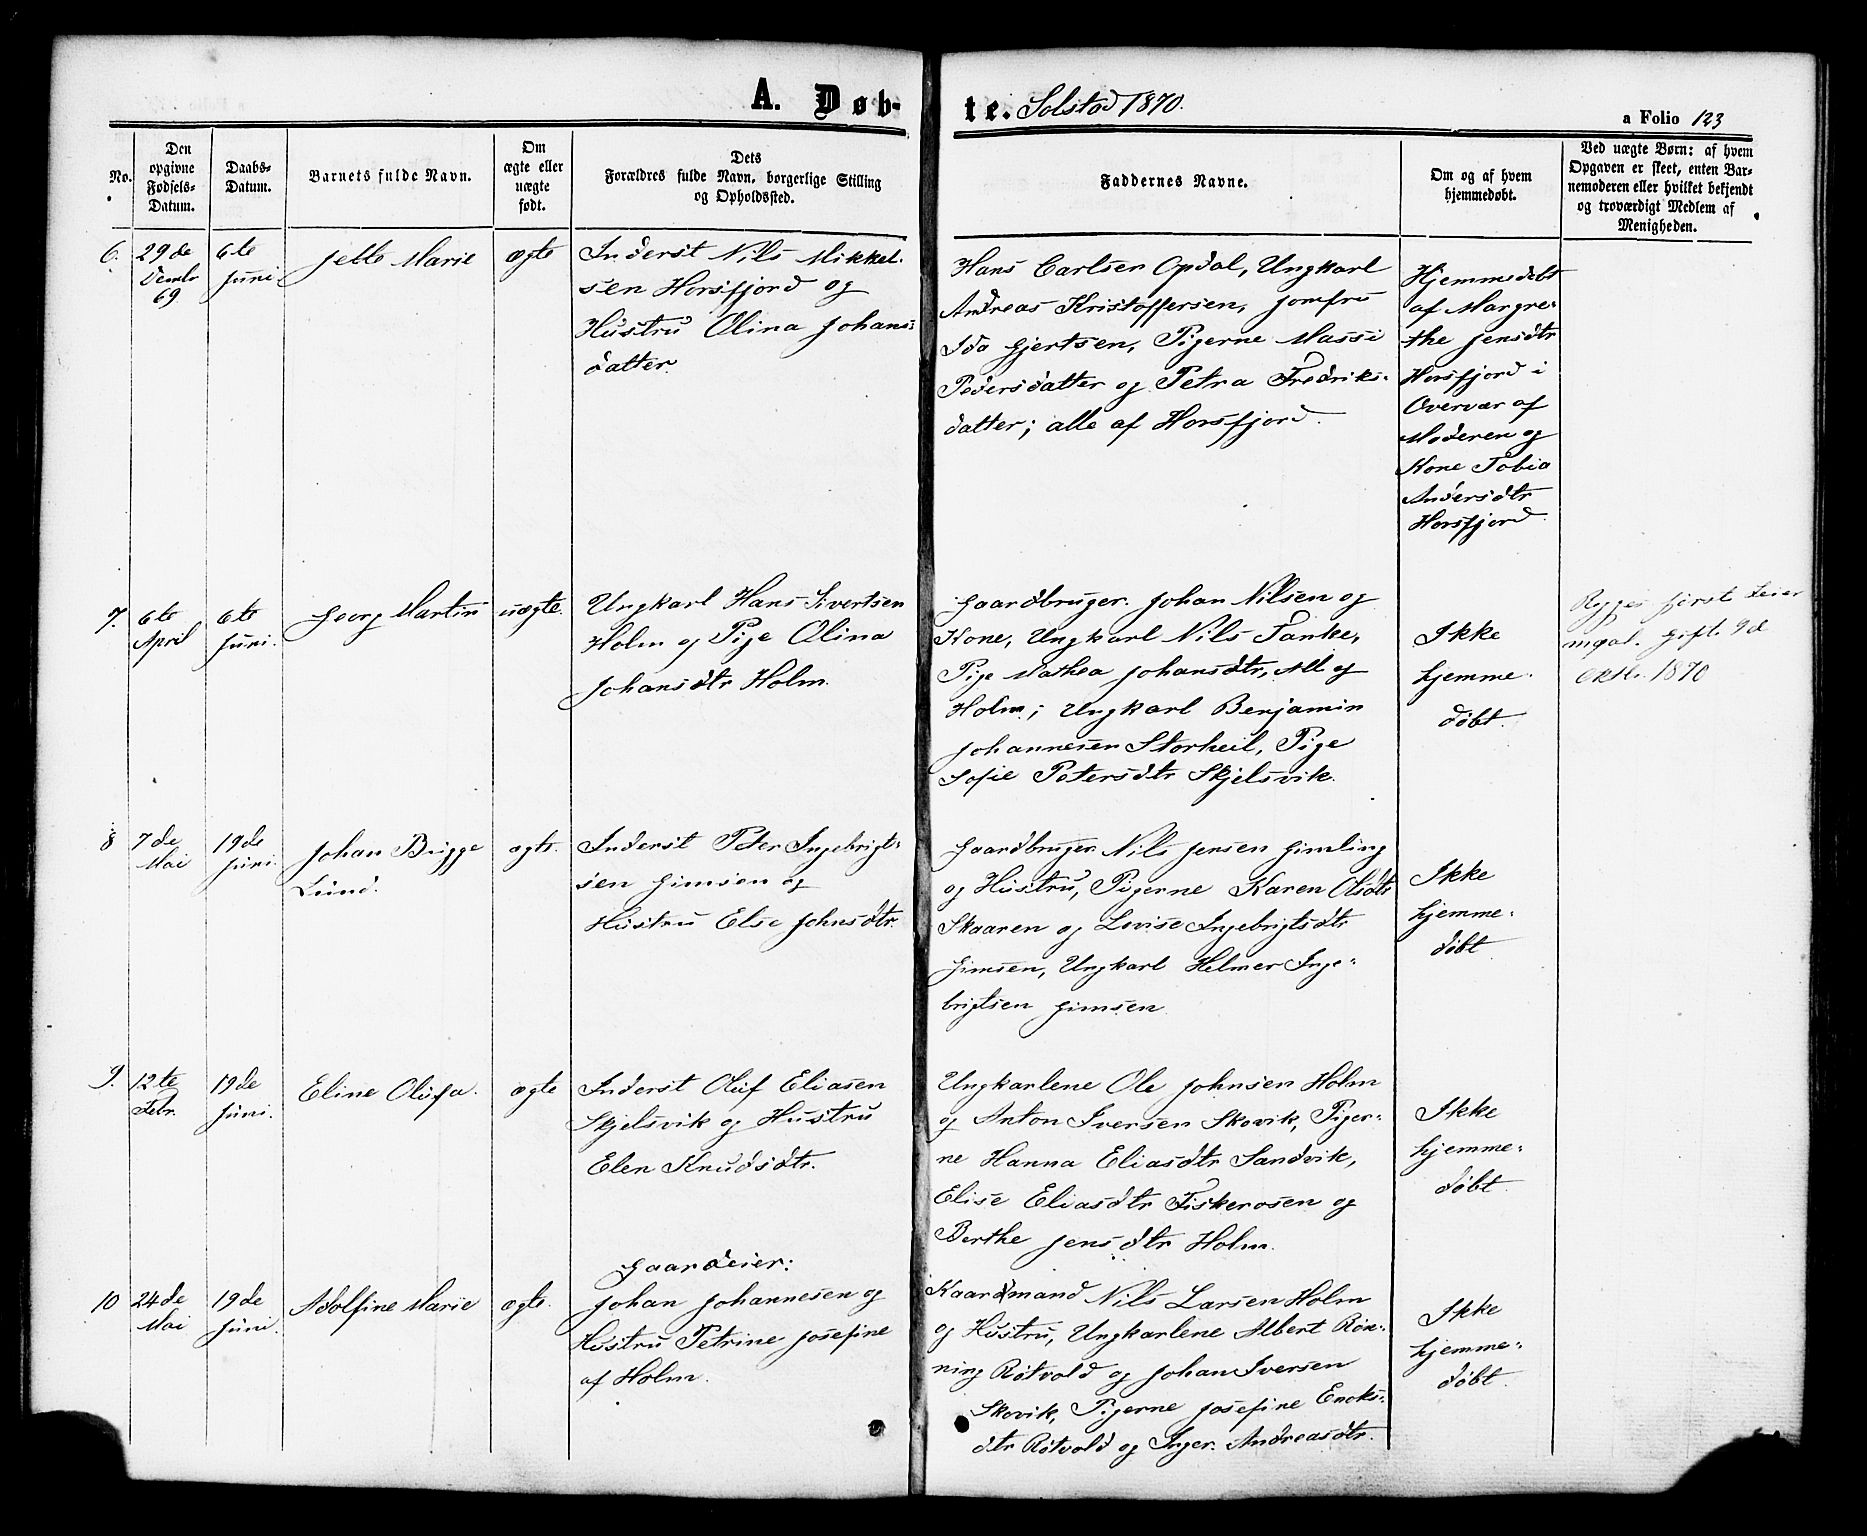 A. Døb-
te. Solstad 1870.
a Folio 123
No.
Den
opgivne
Fødsels-
Datum.
Daabs-
Datum.
Barnets fulde Navn.
Om
ægte eller
uægte
født.
Dets
Forældres fulde Navn, borgerlige Stilling
og Opholdssted.
Faddernes Navne.
Om og af hvem
hjemmedøbt.
Ved uægte Børn: af hvem
Opgaven er skeet, enten Bar-
nemoderen eller hvilket bekjendt
og troværdigt Medlem af
Menigheden.
6.
29de
Decmbr
69
6te
Juni
Jette Marie
ægte
Inderst Nils Mikkel-
sen Horsfjord og
Hustru Olina Johans-
datter
Hans Carlsen Opdal, Ungkarl
Andreas Kristoffersen, Jomfru
Ida Gjertsen, Pigerne Massi
Pedersdatter og Petra Fredriks-
datter; alle af Horsfjord.
Hjemmedøbt
af Margre-
the Jensdtr
Horsfjord i
Overvær af
Moderen og
Kone Tobia
Andersdtr
Horsfjord
7.
6te
April
6te
Juni.
Georg Martin
uægte.
Ungkarl Hans Sivertsen
Holm og Pige Olina
Johansdtr Holm.
Gaardbruger Johan Nilsen og
Kone, Ungkarl Nils Tanke,
Pige Mathea Johansdtr, All og
Holm; Ungkarl Benjamin
Johannesen Storheil, Pige
Sofie Petersdtr Skjelsvik.
Ikke
hjemme-
døbt.
Begges første Leier
maal. Gift 9d
Oktbr. 1870
8
7de
Mai
19de
Juni.
Johan Brigge
Lund.
ægte.
Inderst Peter Ingebrigt-
sen Gimsen og
Hustru Else Johnsdtr.
Gaardbruger Nils Jensen Gimling
og Hustru, Pigerne Karen Olsdtr
Skaaren og Lovise Ingebrigtsdtr
Gimsen, Ungkarl Helmer Inge-
brigtsen Gimsen
Ikke
hjemme-
døbt
9.
12te
Febr.
19de
Juni.
Eline Olufa.
ægte
Inderst Oluf Eliasen
Skjelsvik og Hustru
Elen Knudsdtr.
Ungkarlene Ole Johnsen Holm
og Anton Iversen Skovik, Piger-
ne Hanna Eliasdtr Sandvik,
Elise Eliasdtr Fiskerosen og
Berthe Jensdtr Holm.
Ikke
hjemme-
døbt.
10
24de
Mai
19de
Juni.
Adolfine Marie
ægte.
Gaardeier:
Johan Johannesen og
Hustru Petrine Josefine
af Holm.
Kaardmand Nils Larsen Holm
og Hustru, Ungkarlene Albert Røn-
ning Røtvold og Johan Iversen
Skovik, Pigerne Josefine Enoks-
dtr Røtvold og Inger Andreasdtr.
Ikke
hjemme-
døbt.